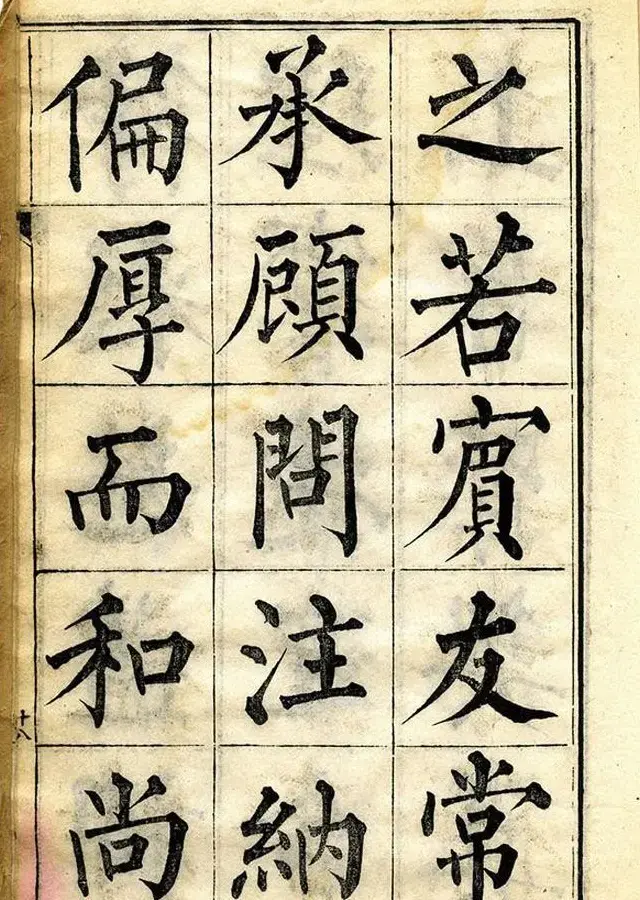 之若賓友常
承顧問注納
偏厚而和尚
十八